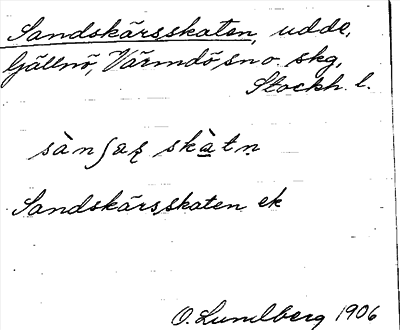 Sandskärsskaten, udde,
Gällnö, Värmdö sn o. skg,
Stockh. l.
sànʃaʂ skàtn
Sandskärsskaten ek
O. Lundberg 1906